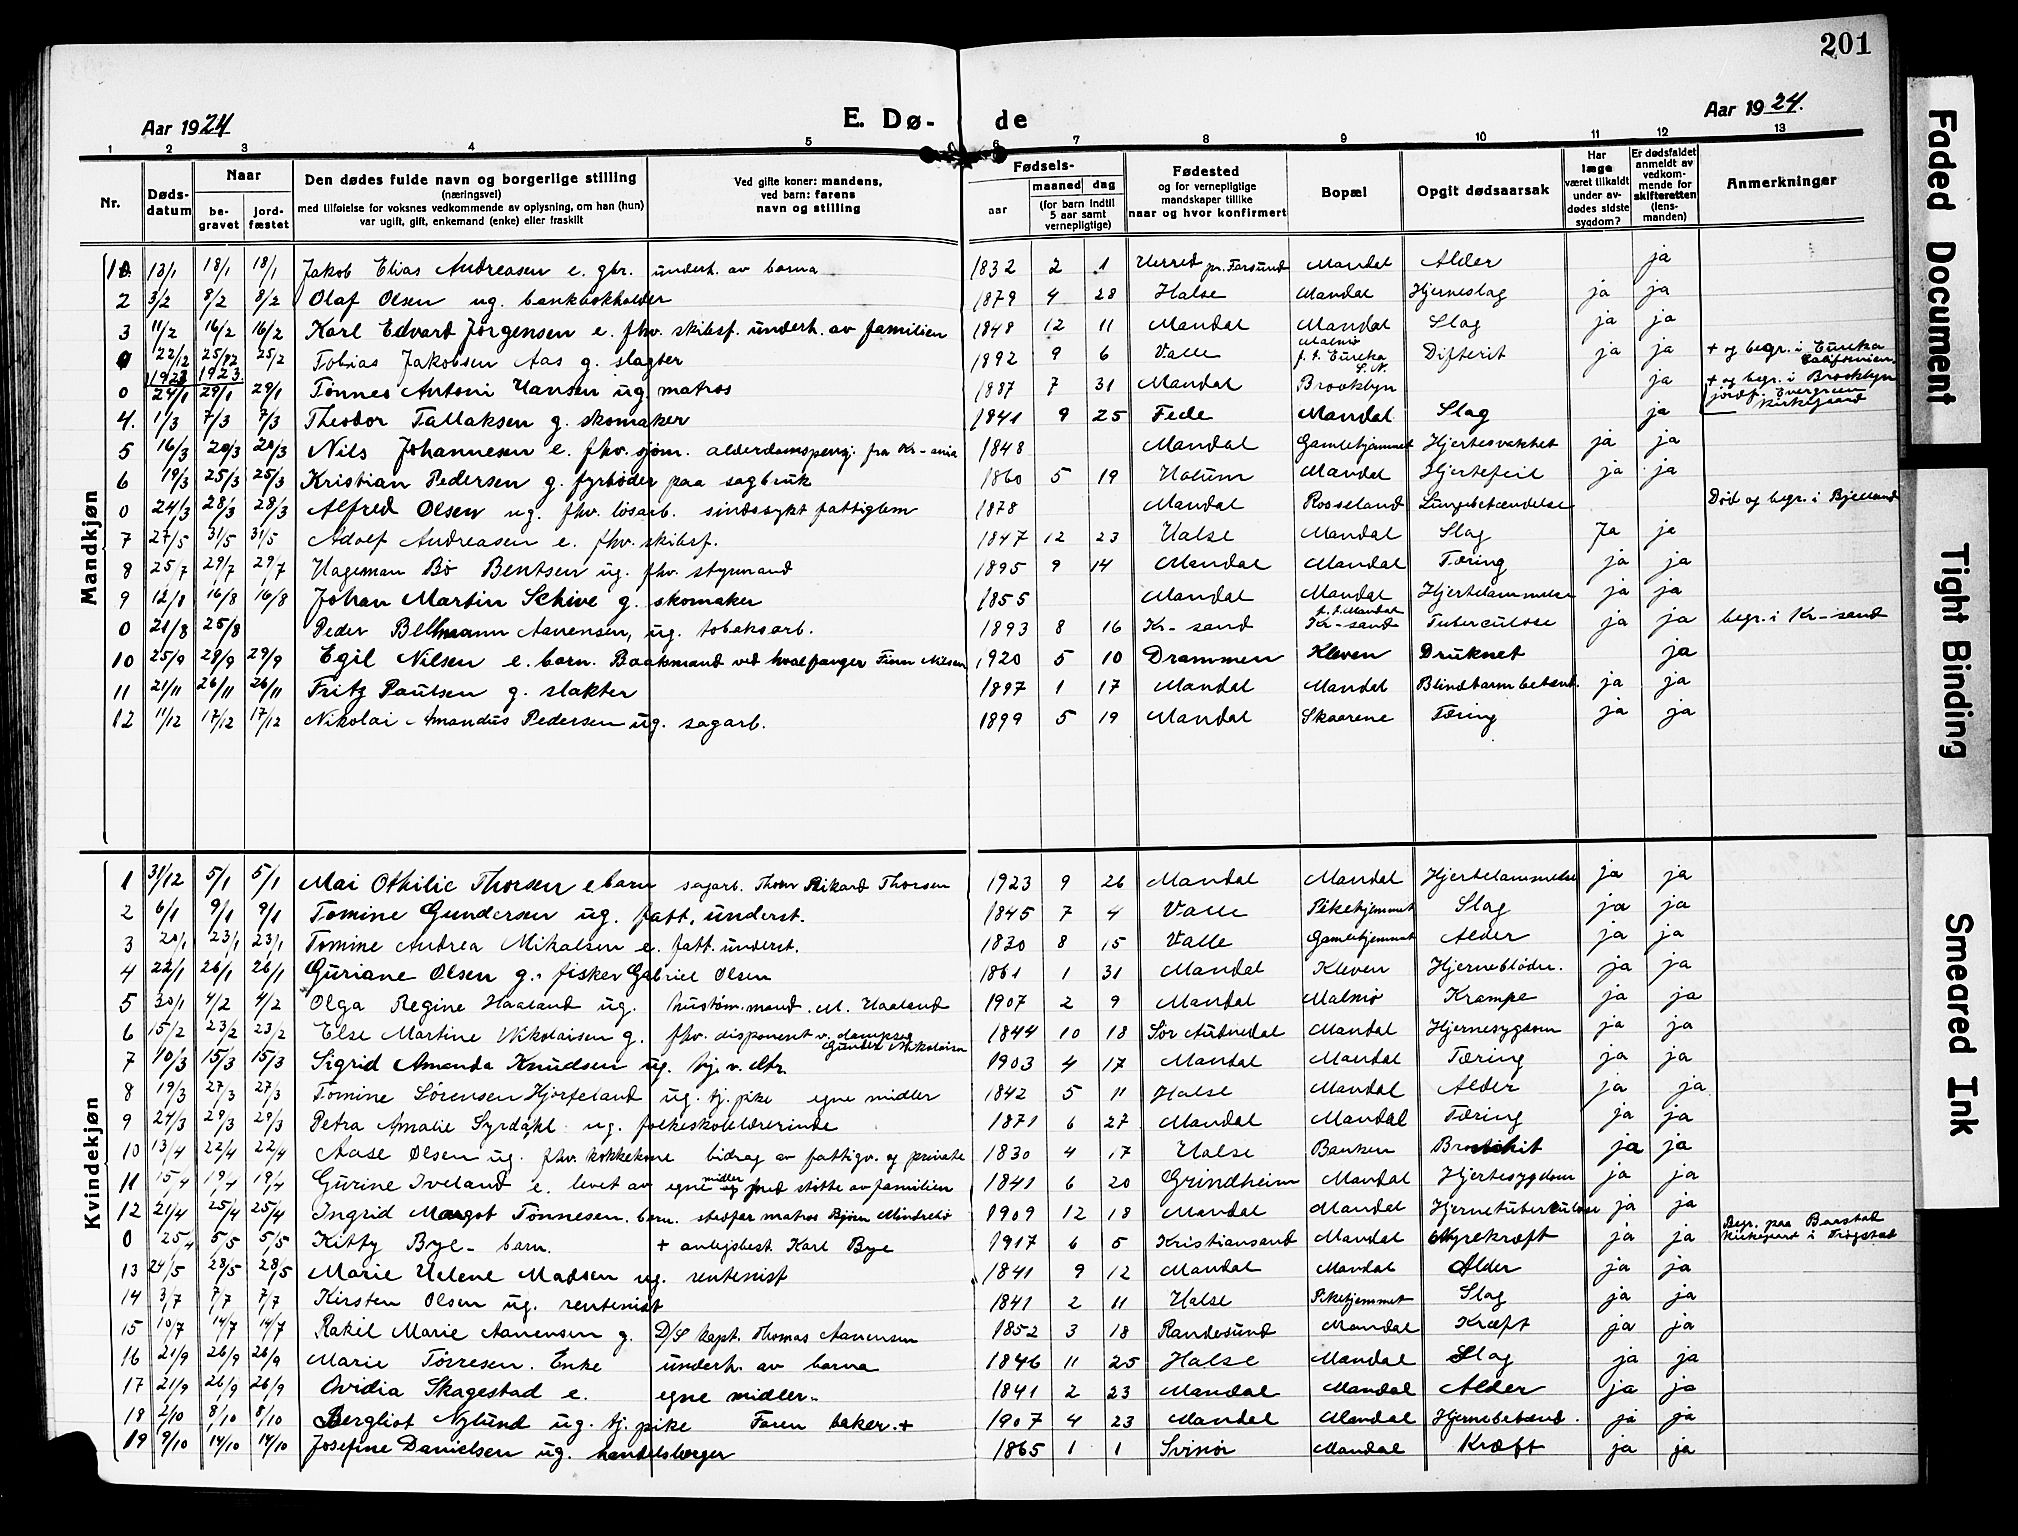 201
Aar 1924
E. Dø-
de
Aar 1924.
1 2 3 4 5 6 7 8 9 10 11 12 13
Nr.
Døds-
datum
Naar
be-
gravet
jord-
fæstet
Den dødes fulde navn og borgerlige stilling
(næringsvei)
med tilføielse for voksnes vedkommende av oplysning, om han (hun)
var ugift, gift, enkemand (enke) eller fraskilt
Ved gifte koner: mandens,
ved barn: farens
navn og stilling
Fødsels-
aar
maaned
dag
(for barn indtil
5 aar samt
vernepligtige)
Fødested
og for vernepligtige
mandskaper tillike
naar og hvor konfirmert
Bopæl
Opgit dødsaarsak
Har
læge
været tilkaldt
under av-
dødes sidste
sygdom?
Er dødsfaldet
anmeldt av
vedkom-
mende for
skifteretten
(lens-
manden)
Anmerkninger
Mandkjøn
1 13/1 18/1 18/1 Jakob Elias Andreasen e. gbr. underh. av barna 1832 2 1 Herred pr. Farsund Mandal Alder ja
2 3/2 8/2 8/2 Olaf Olsen ug. bankbokholder 1879 4 28 Halse Mandal Hjerneslag ja ja
3 11/2 16/2 16/2 Karl Edvard Jørgensen e. fhv. skibsf. underh. av familien 1848 12 11 Mandal Mandal Slag ja ja
0 22/12 1923 25/12 1923 25/2 Tobias Jakobsen Aas g. slagter 1892 9 6 Valle Malmø f. t. Eureka Difterit ja ja + og begr. i Eureka Californien
0 24/1 29/1 29/1 Tønnes Antoni Hansen ug. matros 1887 7 31 Mandal Brooklyn ja + og begr. i Brooklyn jordf. Evergreen Kirkegaard
4. 1/3 7/3 7/3 Theodor Tallaksen g. skomaker 1841 9 25 Fede Mandal Slag ja
5 16/3 20/3 20/3 Nils Johannesen e. fhv. sjøm. alderdomspensj. fra Kr-ania 1848 Mandal Gamlehjemmet Hjertesvakhet ja ja
6 19/3 25/3 25/3 Kristian Pedersen g. fyrbøder paa sagbruk 1860 5 19 Holum Mandal Hjertefeil ja ja
0 24/3 28/3 28/3 Alfred Olsen ug. fhv. løsarb. sindssykt fattiglem 1878 Mandal Rosseland Lungebetændelse Død og begr. i Bjelland
7 27/5 31/5 31/5 Adolf Andreasen e. fhv. skibsf. 1847 12 23 Halse Mandal Slag Ja ja
8 25/7 29/7 29/7 Hageman Bø Bentsen ug. fhv. styrmand 1895 9 14 Mandal Mandal Tæring ja ja
9 12/8 16/8 16/8 Johan Martin Schive g. skomaker 1855 Mandal Mandal Hjertelammelse ja ja
0 21/8 25/8 Peder Bellmann Aanensen, ug. tobaksarb. 1893 8 16 Kr-sand f. t. Mandal Kr-sand Tuberculose ja ja begr. i Kr-sand
10 25/9 28/9 29/9 Egil Nilsen e. barn. Baaksmand ved hvalfanger Finn Nilsen 1920 5 10 Drammen Kleven Druknet ja
11 21/11 26/11 26/11 Fritz Paulsen g. slakter 1897 1 17 Mandal Mandal Blindtarmbetænd. ja ja
12 11/12 17/12 17/12 Nikolai Amandus Pedersen ug. sagarb. 1899 5 19 Mandal Skaarene Tæring ja ja
Kvindekjøn
1 31/12 5/1 5/1 Mai Othilie Thorsen e barn sagarb. Thor Rikard Thorsen 1923 9 26 Mandal Mandal Hjertelammelse ja ja
2 6/1 9/1 9/1 Tomine Gundersen ug. fatt. underst. 1845 7 4 Valle Pikehjemmet Slag ja ja
3 20/1 23/1 23/1 Tomine Andrea Mikalsen e. fatt. underst. 1830 8 15 Valle Gamlehjemmet Alder ja ja
4 22/1 26/1 26/1 Guriane Olsen g. fisker Gabriel Olsen 1861 1 31 Mandal Kleven Hjerneblødn. ja ja
5 30/1 4/2 4/2 Olga Regine Haaland ug. hustøm. mand. M. Haaland 1907 2 9 Mandal Malmø Krampe ja ja
6 15/2 23/2 23/2 Else Martine Nikolaisen g. fhv. disponent v. dampsag Gunder Nikolaisen 1844 10 18 Sør Audnedal Mandal Hjernesygdom ja ja
7 10/3 15/3 15/3 Sigrid Amanda Knudsen ug. hj. v. dtr. 1903 4 17 Mandal Mandal Tæring ja ja
8 19/3 27/3 27/3 Tomine Sørensen Hjorteland ug. tj. pike egne midler 1842 5 11 Halse Mandal Alder ja ja
9 24/3 29/3 29/3 Petra Amalie Syrdahl ug. folkeskolelærerinde 1871 6 27 Mandal Mandal Tæring ja ja
10 13/4 22/4 22/4 Aase Olsen ug. fhv. kokkekone bidrag av fattigv. og private 1830 4 17 Halse Banken Bronchit ja ja
11 15/4 19/4 19/4 Gurine Iveland e. levet av egne midler og med støtte av familien 1841 6 20 Grindheim Mandal Hjertesygdom ja ja
12 21/4 25/4 25/4 Ingrid Margot Tønnesen. barn. stedfar matros Bjørn Mindrebø 1909 12 18 Mandal Mandal Hjernetuberculose ja ja
0 25/4 5/5 5/5 Kitty Bye - barn. + anlegsbest. Karl Bye 1917 6 5 Kristiansand Mandal Nyrekræft ja ja Begr. paa Baastad Kirkegaard i Trøgstad
13 24/5 28/5 28/5 Marie Helene Madsen ug. rentenist 1841 9 12 Mandal Mandal Alder ja ja
14 3/7 7/7 7/7 Kirsten Olsen ug. rentenist 1841 2 11 Halse Pikehjemmet Slag ja ja
15 10/7 14/7 14/7 Rakel Marie Aanensen g. D/S kapt. Thomas Aanensen 1852 3 18 Randesund Mandal Kræft ja ja
16 21/9 26/9 26/9 Marie Tørresen. Enke underh. av barna 1846 11 25 Halse Mandal Slag ja ja
17 21/9 26/9 26/9 Ovidia Skagestad e. egne midler. 1841 2 23 Mandal Mandal Alder ja ja
18 2/10 8/10 8/10 Bergliot Nylund ug. tj. pike Faren baker. + 1907 4 23 Mandal Mandal Hjernebetænd. ja ja
19 9/10 14/10 14/10 Josefine Danielsen ug. handelsborger 1865 1 1 Svinør Mandal Kræft ja ja
Faded Document
Tight Binding
Smeared Ink